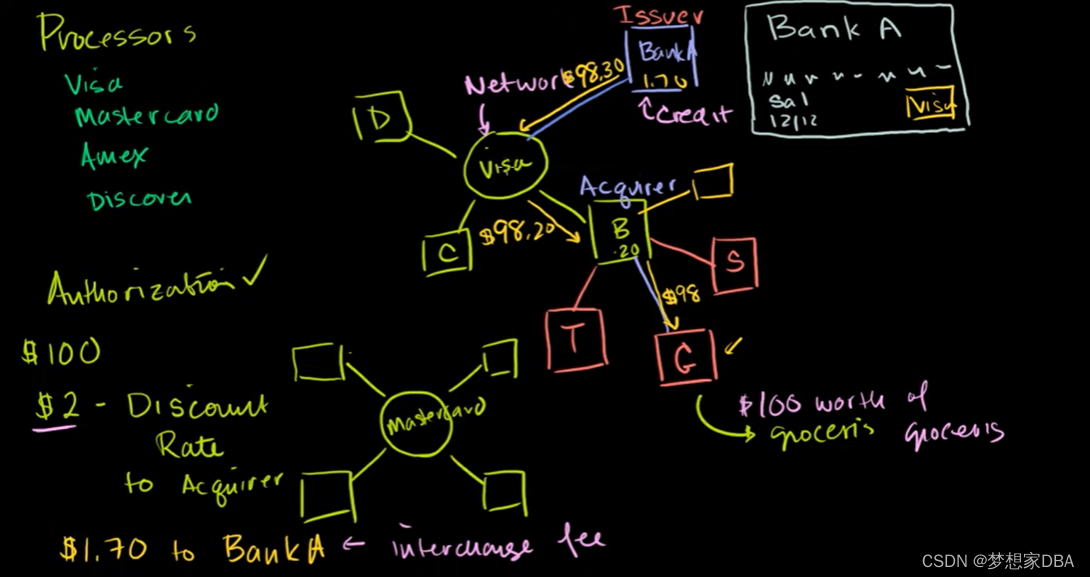 Processors
Visa
Mastercard
Amex
Discover
Authorization ✓
$100
$2 - Discount
Rate
to Acquirer
$1.70 to Bank A ← interchange fee
Issuer
Bank A
1.70
Network
$98.30
↑ Credit
D
Visa
C
$98.20
Acquirer
B
.20
S
T
$98
G
$100 worth of
groceris groceris
Mastercard
Bank A
Sal
12/12
Visa
CSDN @梦想家DBA